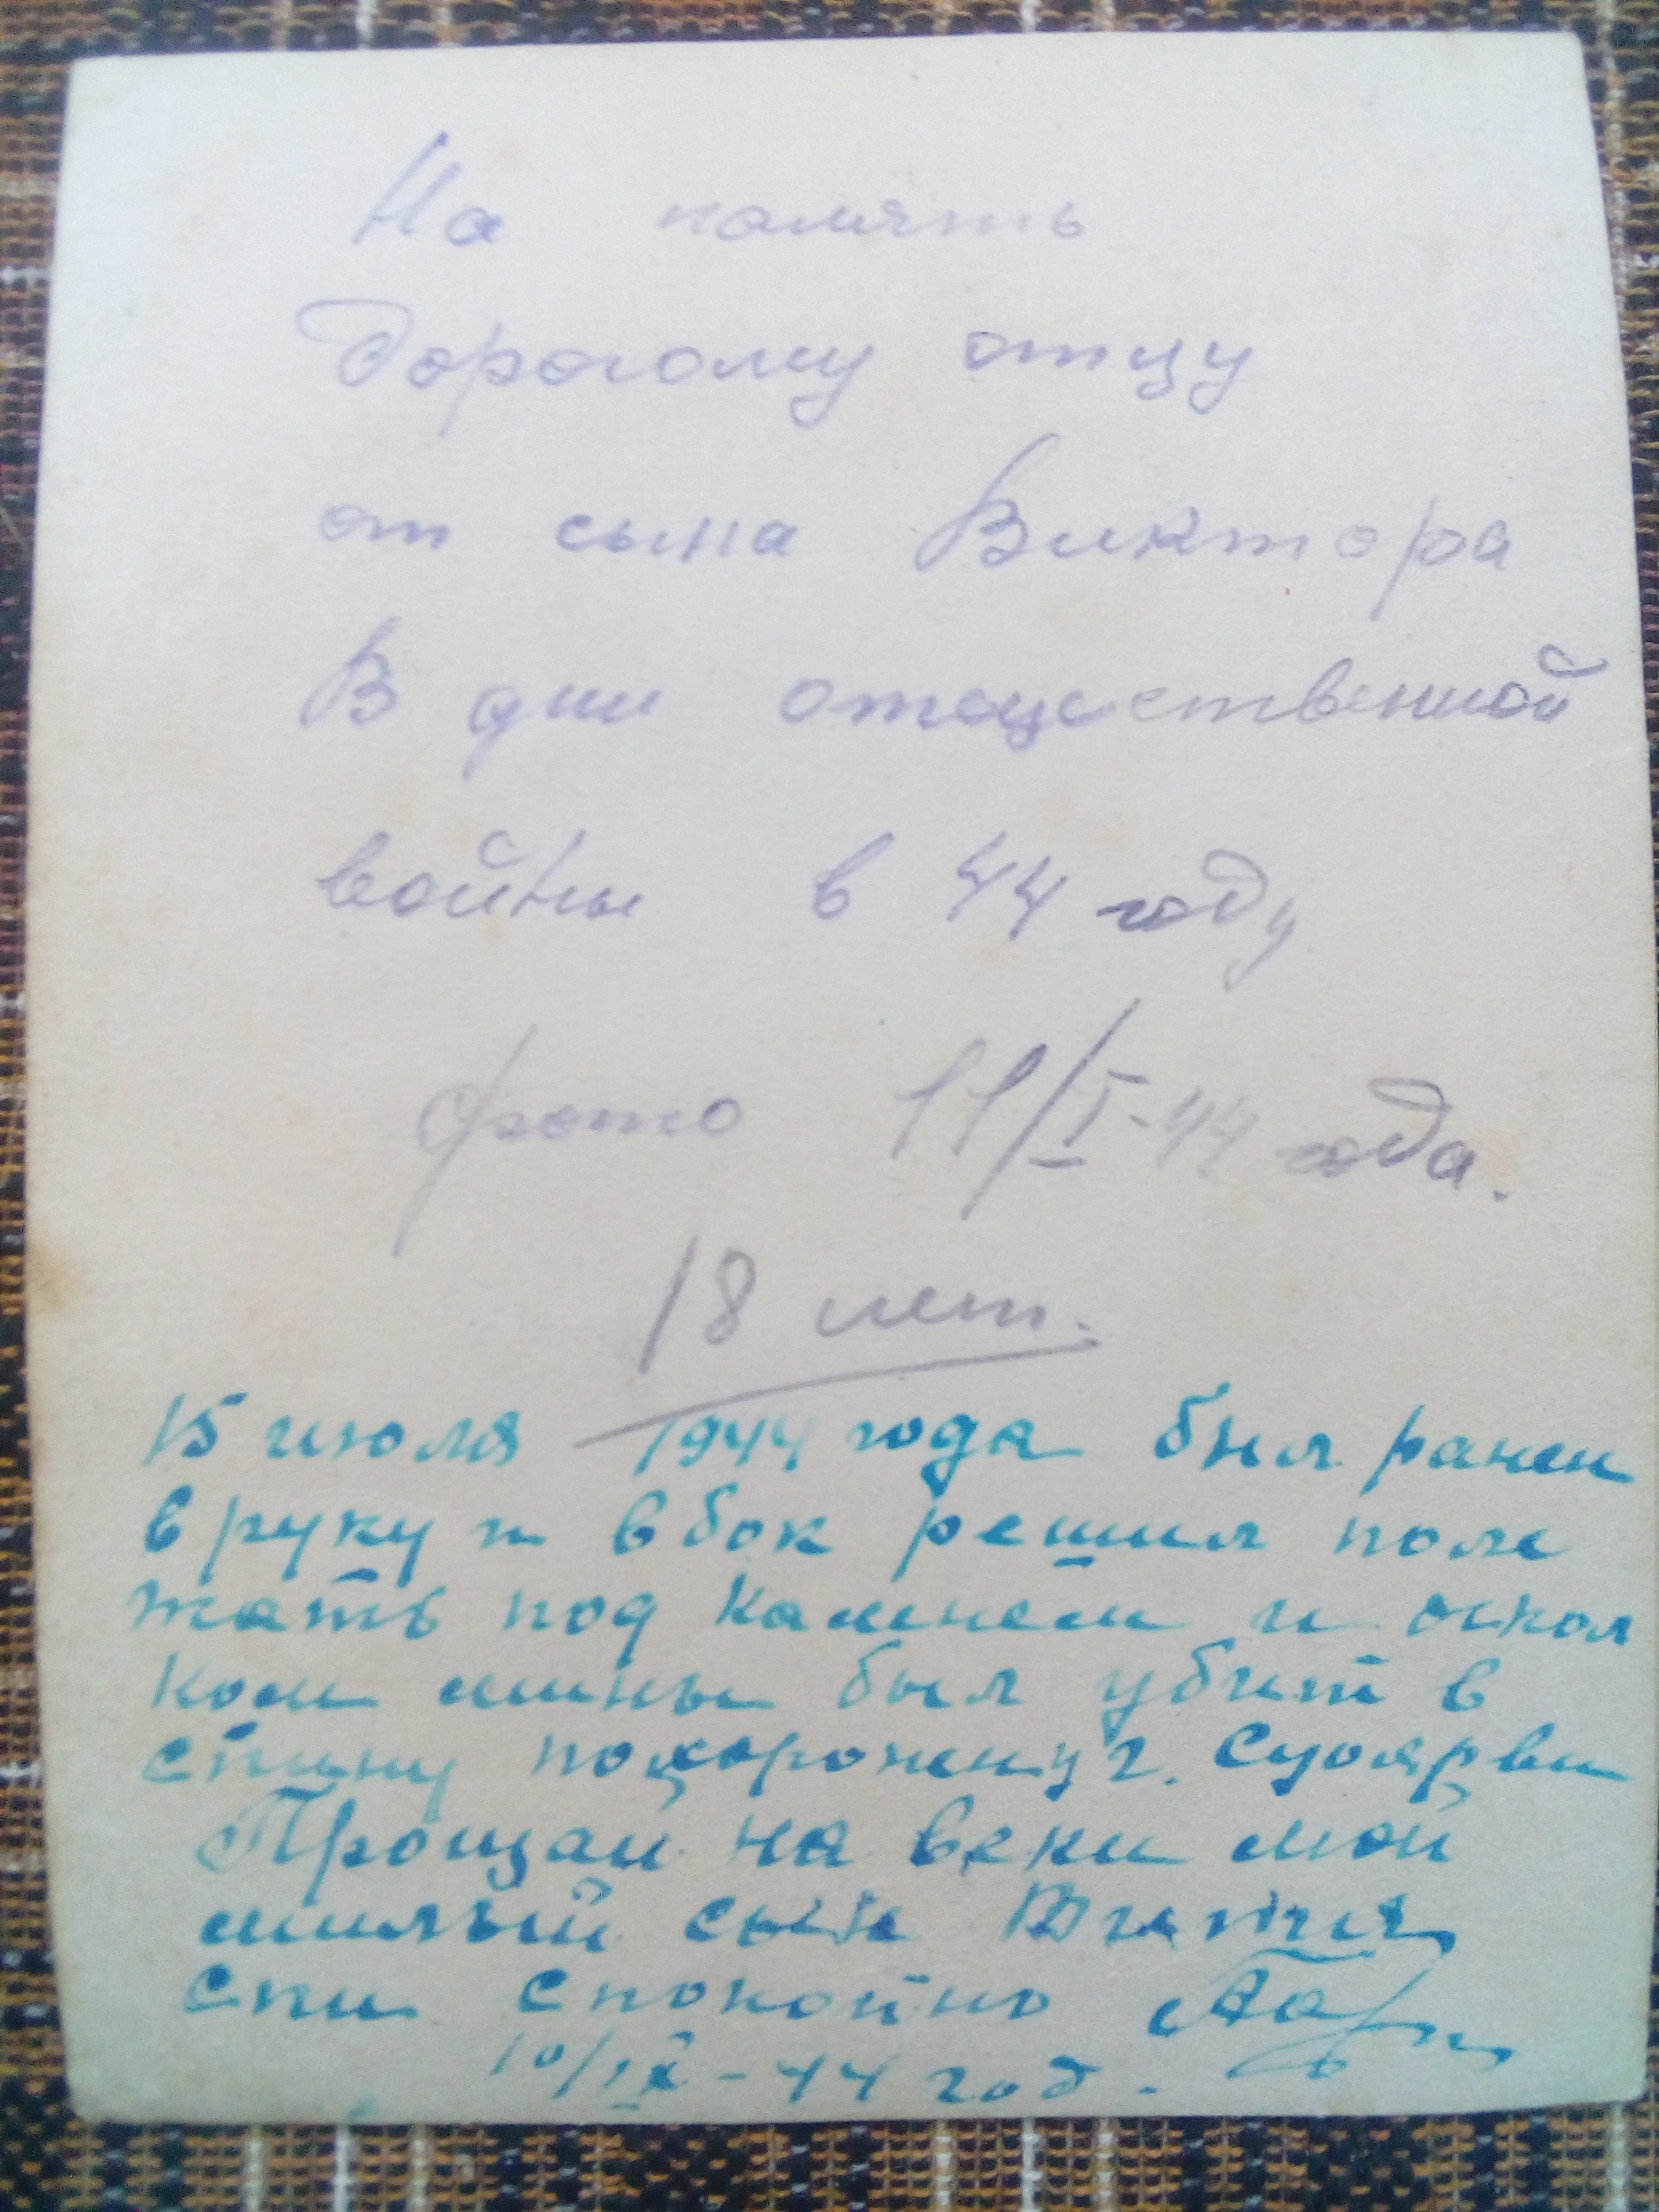 На память
Дорогому отцу
от сына Виктора
В дни отечественной
войны в 44 году
фото 11/I-44 года.
18 лет.
15 июля 1944 года был ранен
в руку и в бок решил поле
жать под камнем и оскол
ком мины был убит в
спину похоронен у г. Суоярви
Прощай на веки мой
милый сын Витя
Спи спокойно
10/IX-44 год.